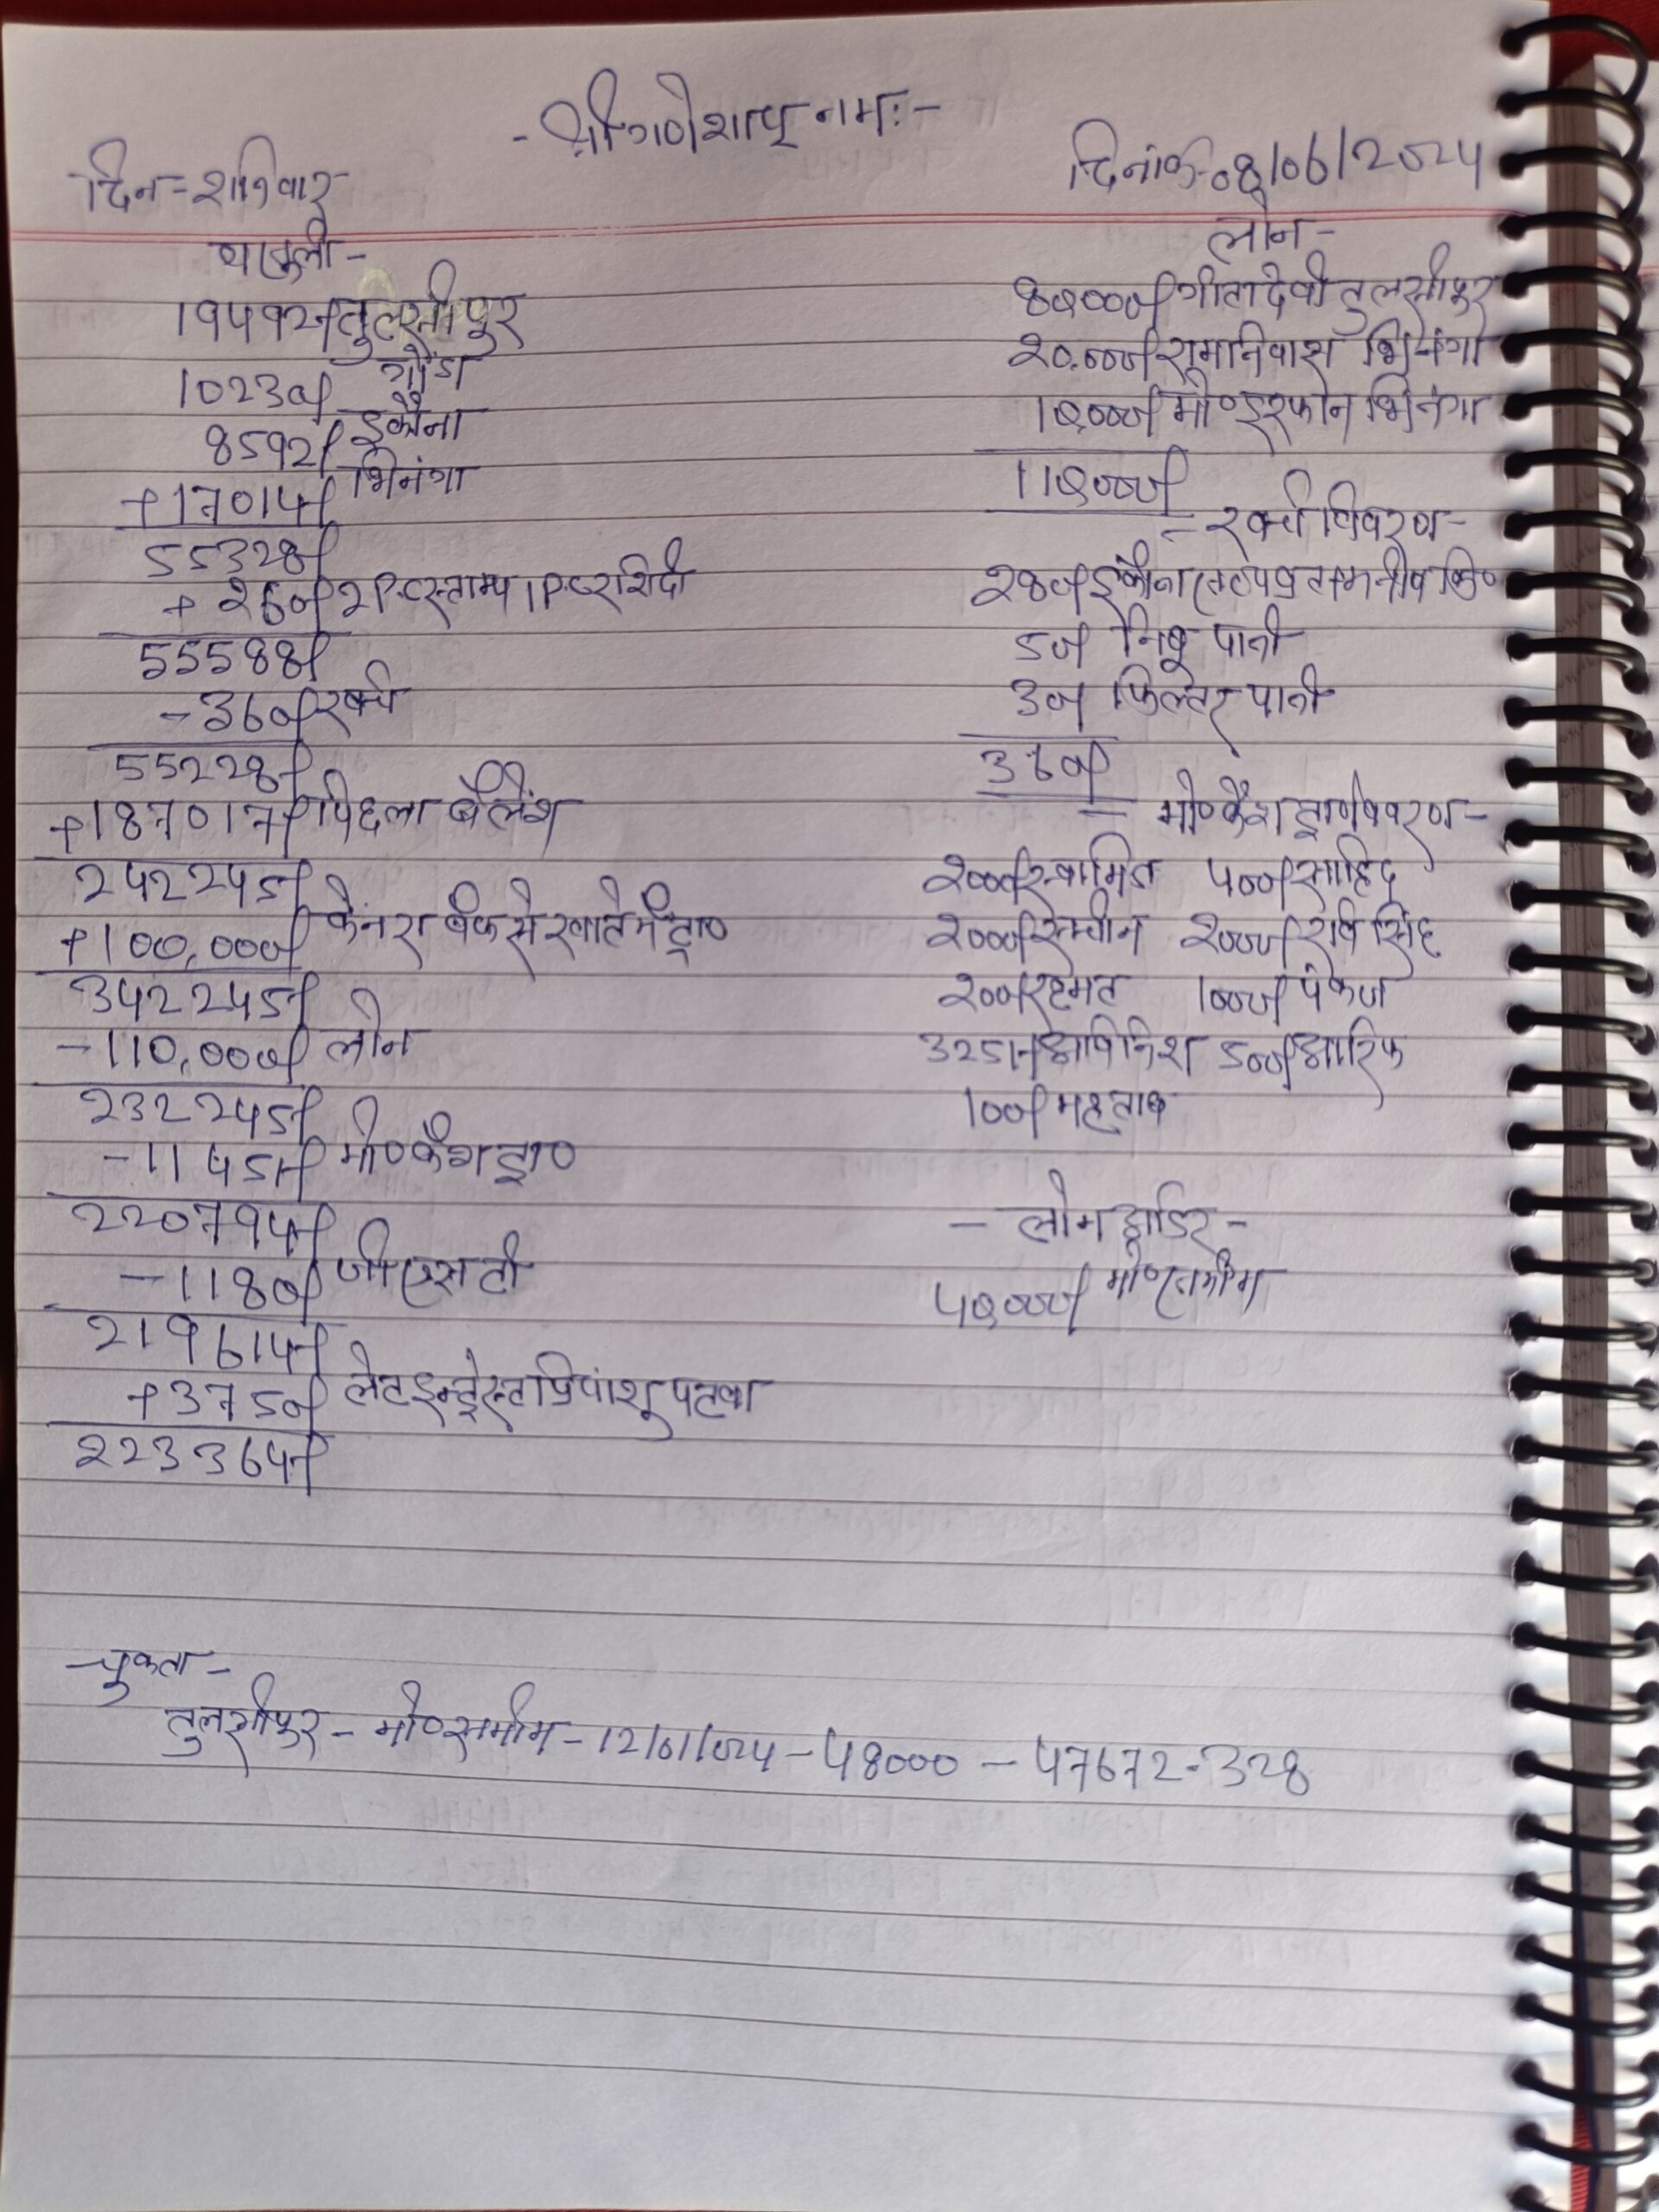 - श्री गणेशाय नमः -
दिन - शनिवार
दिनांक - 08/06/2024
वसूली -
19492/- तुलसीपुर
10230/- गोंडा
8592/- इकौना
+17014/- भिनंगा
55328/-
+ 260/- 2 Pc स्टाम्प 1 Pc रशिदी
55588/-
- 360/- खर्च
55228/-
+187017/- पिछला बैलेंश
242245/-
+100,000/- केनरा बैंक से खाते में ट्रा०
342245/-
-110,000/- लोन
232245/-
-11451/- मो० कैश ट्रा०
220794/-
-1180/- जीएसटी
219614/-
+3750/- लेट इन्ट्रेस्ट प्रियांशू पटवा
223364/-
लोन -
80,000/- गीता देवी तुलसीपुर
20,000/- रामनिवास भिनंगा
10,000/- मो० इरफान भिनंगा
110,000/-
- खर्च विवरण -
280/- इकौना
50/- निबू पानी
30/- फिल्टर पानी
360/-
- मो० कैश ट्रा० विवरण -
2000/- 400/- साहिद
2000/- 2000/- रवि सिंह
200/- रहमत 1000/- पंकज
3251/- अविनिश 500/- आरिफ
100/- महताब
- लोन आर्डर -
40,000/- मो०
- चुकता -
तुलसीपुर - मो० समीम - 12/01/024 - 48000 - 47672 - 328